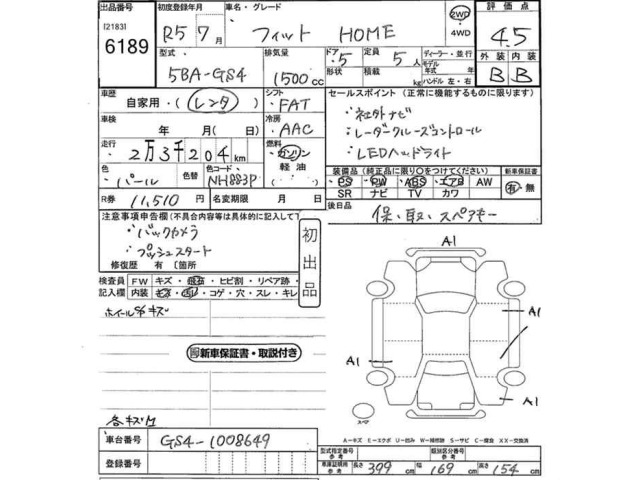 出品番号 初度登録年月 車名・グレード 2WD 評価点
[2183] R5 7月 フィット HOME 4WD 4.5
6189 型式 排気量 ドア 定員 ディーラー・並行 外装 内装
5BA-GS4 1500cc 5 5人 モデル年式 年 B B
形状 積載 kg ハンドル 左・右
車歴 シフト セールスポイント (正常に機能するものに限ります)
自家用・(レンタ) FAT ・社外ナビ
車検 冷房 ・レーダークルーズコントロール
年 月(日) AAC ・LEDヘッドライト
走行 燃料
2万3千204km ガソリン 軽油
色 色替 色コード 装備品 (純正品に限り〇をつけてください) 新車保証書
パール NH883P PS PW ABS エアB AW 有・無
SR ナビ TV カワ
R券 11,510円 名変期限 月 日 後日品
注意事項申告欄(不具合内容等は具体的に記入して下 保、取、スペアキー
・バックカメラ 初出品
・プッシュスタート
修復歴 有 〔箇所
検査員 FW キズ・飛石・ヒビ割・リペア跡・
記入欄 内装 キズ・汚レ・コゲ・穴・スレ・キレ
ホイールキズ
新車保証書・取説付き
各キズ小
A1
A1
A1
A1
スペア
A-キズ E-エクボ U-凹み W-補修跡 S-サビ C-腐食 XX-交換済
車台番号 GS4-1008649
型式指定番号 参考 類別区分番号 参考
登録番号 車庫証明用 参考 長さ 399cm 幅 169cm 高さ 154cm